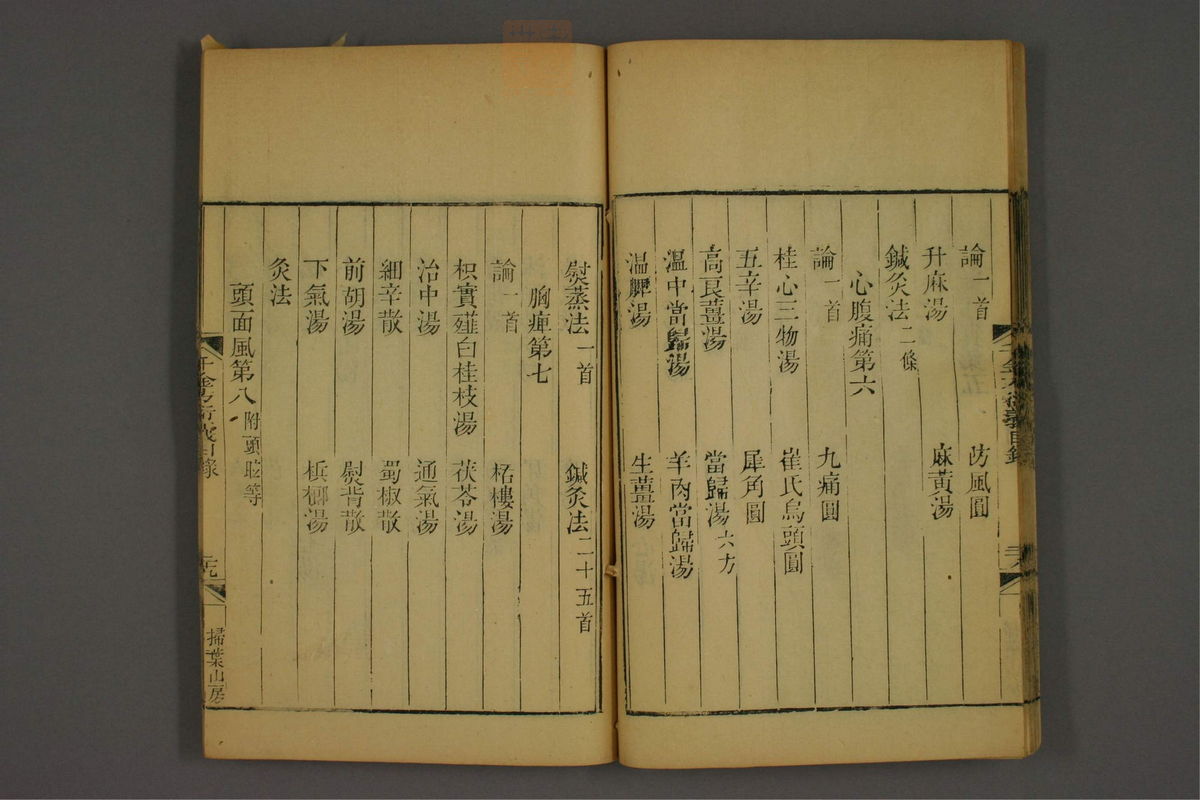 論一首 防風圓
升麻湯 麻黃湯
鍼灸法二條
心腹痛第六
論一首 九痛圓
桂心三物湯 崔氏烏頭圓
五辛湯 犀角圓
高良薑湯 當歸湯六方
溫中當歸湯 羊肉當歸湯
温脾湯 生薑湯
熨蒸法一首 鍼灸法二十五首
胸痺第七
論一首 栝樓湯
枳實薤白桂枝湯 茯苓湯
治中湯 通氣湯
細辛散 蜀椒散
前胡湯 熨背散
下氣湯 檳榔湯
灸法
頭面風第八附頭眩等
千金方衍義目錄
掃葉山房